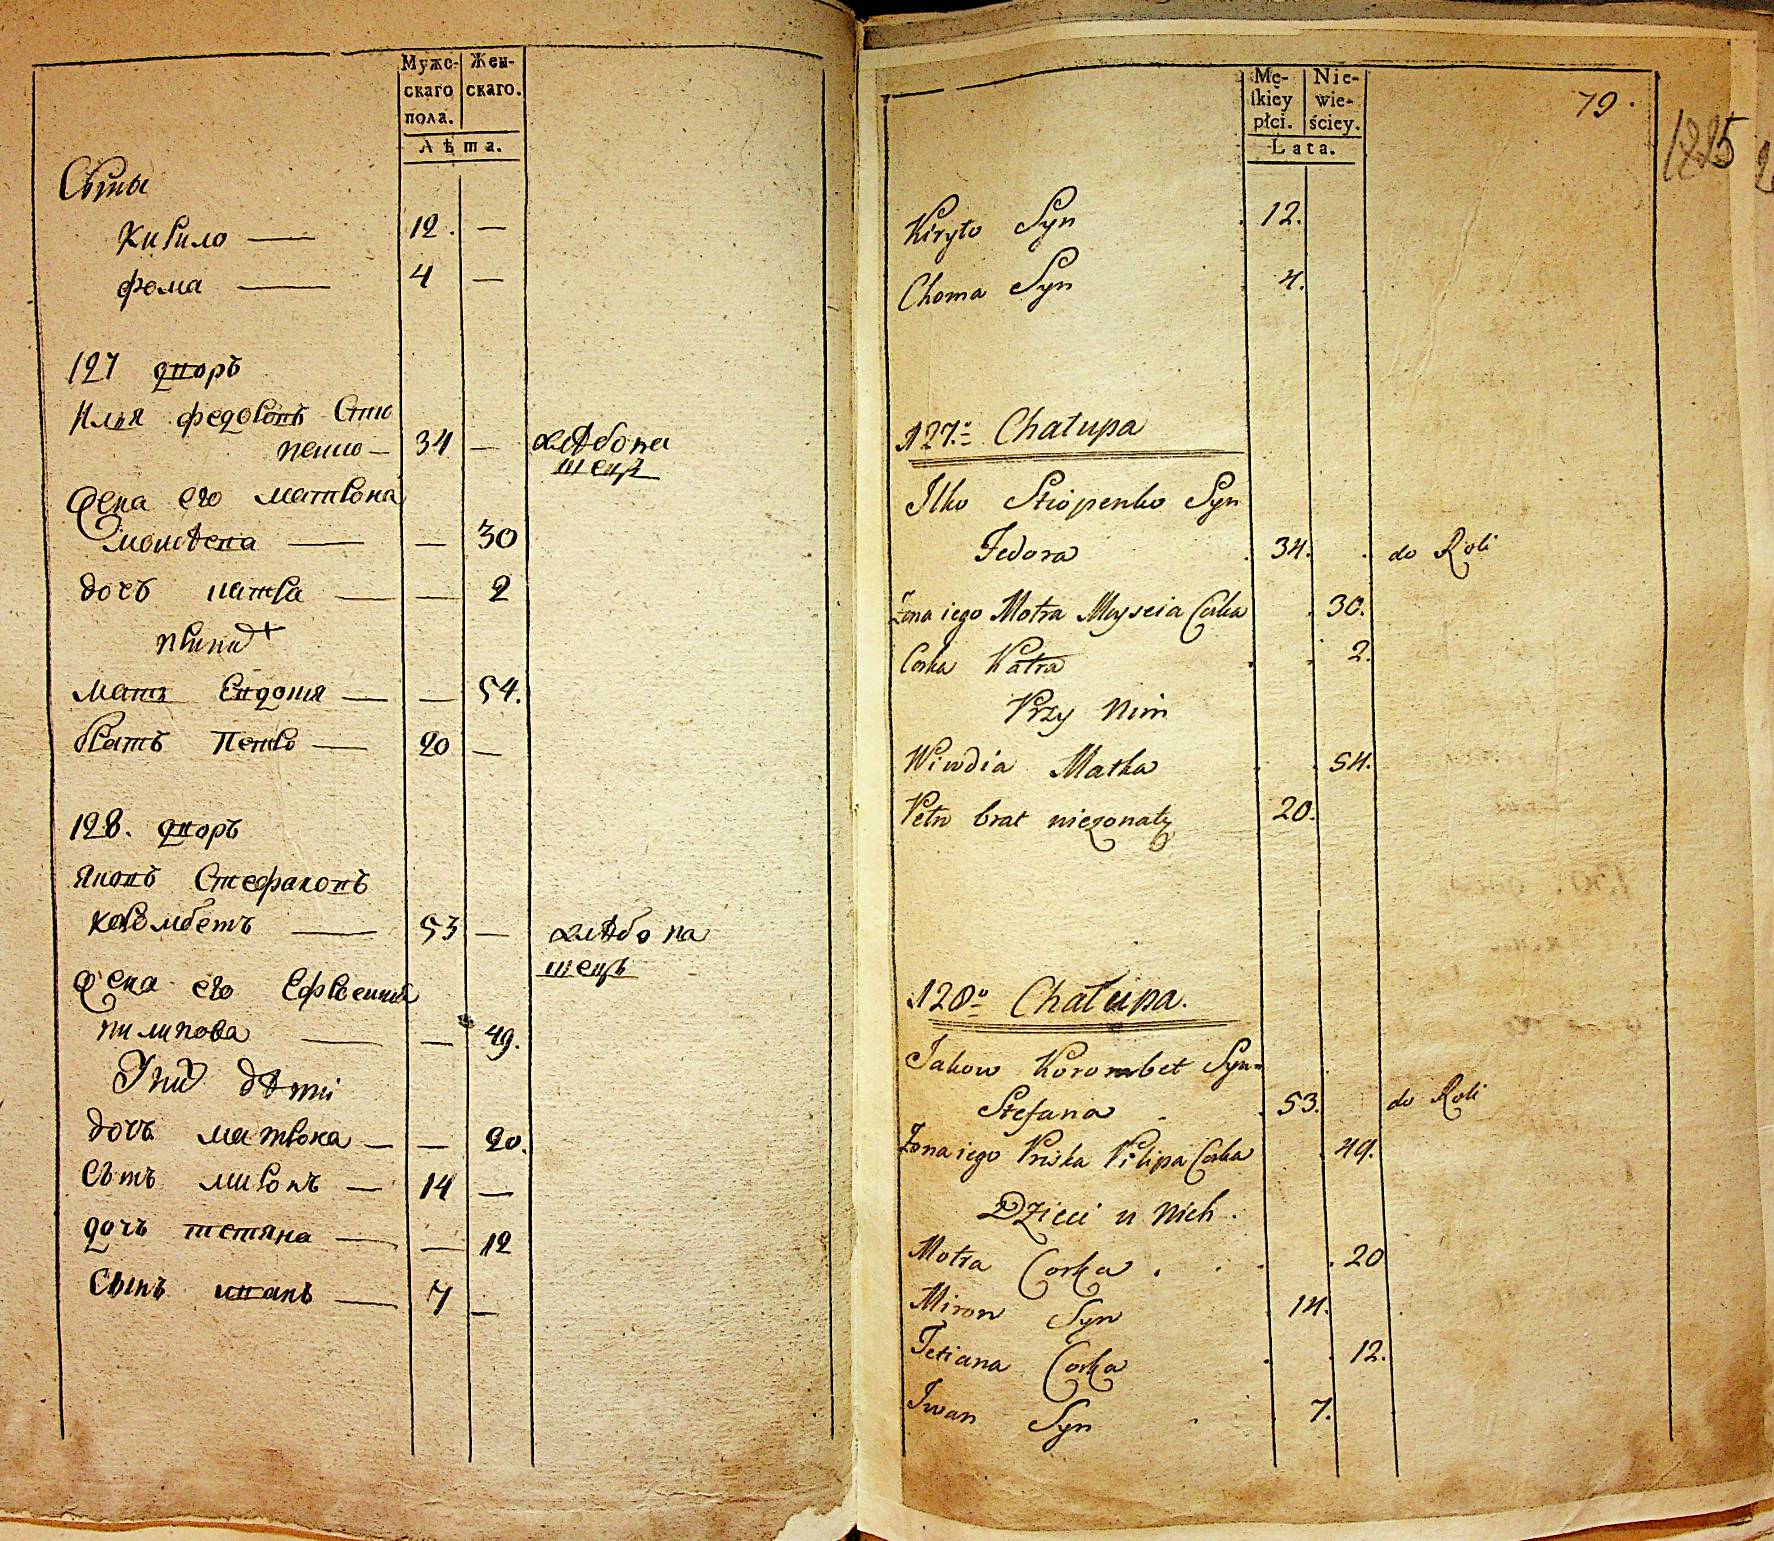 Мужс- Жен-
скаго скаго.
пола.
Лѣта.
Сыны
Кирило — 12. —
фома — 4 —
127 дворъ
Илья федоровъ Стю
пенко — 34 — хлѣбопа
шецъ
Жена его матрона
моисѣева — — 30
дочь катра — — 2
при нѣ
мать Евдокия — — 54.
братъ Петро — 20 —
128. дворъ
Яковъ Стефановъ
коромбетъ — 53 — хлѣбопа
шецъ
Жена его Ефросиния
пилипова — — 49.
У них дѣти
дочь матрона — — 20.
Сынъ миронъ — 14 —
дочъ тетяна — — 12
Сынъ иванъ — 7 —
Mę- Nie-
skiey wie-
płci. ściey.
Lata.
79.
1885
Kiryło Syn . 12.
Choma Syn . 4.
127.o Chałupa
Ilko Stiopenko Syn
Fedora . 34. . do Roli
Żona iego Motra Moyseia Corka . 30.
Corka Katra . . 2.
Przy Nim
Wiwdia Matka . . 54.
Petro brat nieżonaty 20.
128o Chałupa.
Jakow Korombet Syn=
Stefana . . 53. do Roli
Żona iego Pryska Pilipa Corka . 49.
Dzieci u Nich.
Motra Corka . . . . 20
Miron Syn . 14.
Tetiana Corka . . 12.
Iwan Syn . . 7.